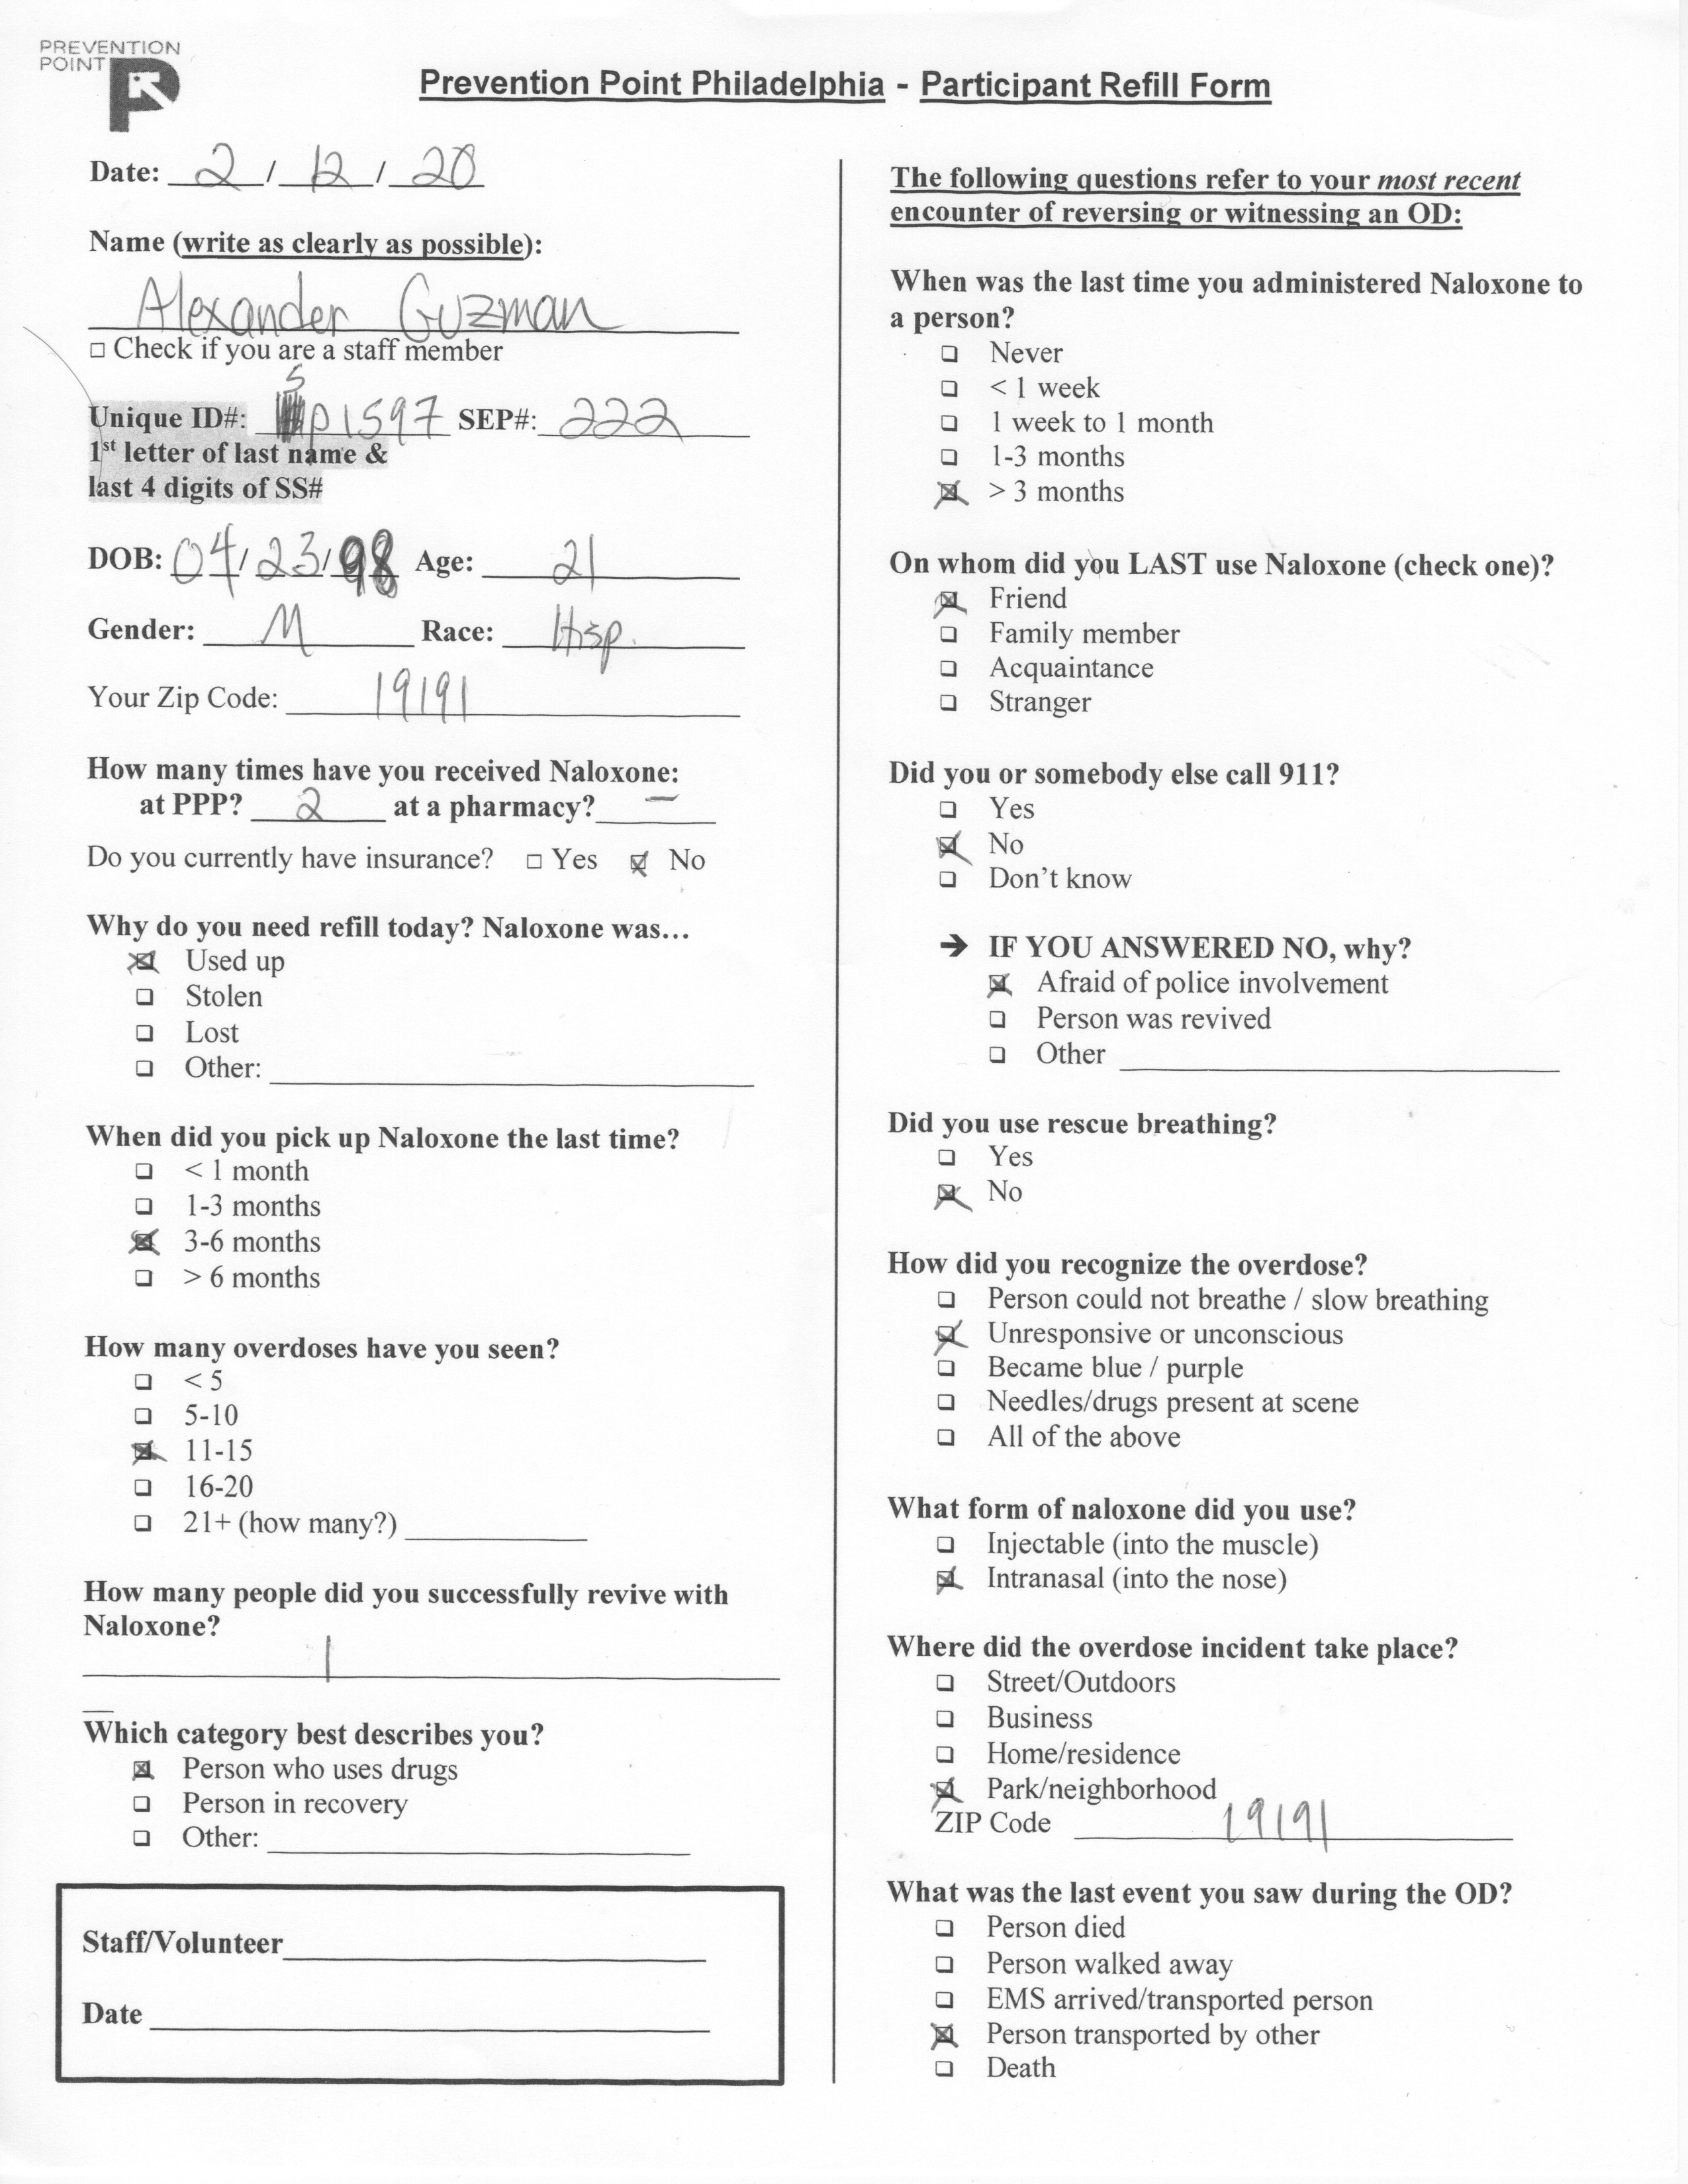 PREVENTION
POINT
Prevention Point Philadelphia - Participant Refill Form
Date: 2 / 12 / 20
Name (write as clearly as possible):
Alexander Guzman
□ Check if you are a staff member
5
Unique ID#: p1597 SEP#: 222
1st letter of last name &
last 4 digits of SS#
DOB: 04/23/98 Age: 21
Gender: M Race: Hisp.
Your Zip Code: 19191
How many times have you received Naloxone:
at PPP? 2 at a pharmacy? —
Do you currently have insurance? □ Yes ☒ No
Why do you need refill today? Naloxone was...
☒ Used up
❑ Stolen
❑ Lost
❑ Other:
When did you pick up Naloxone the last time?
❑ < 1 month
❑ 1-3 months
☒ 3-6 months
❑ > 6 months
How many overdoses have you seen?
❑ < 5
❑ 5-10
☒ 11-15
❑ 16-20
❑ 21+ (how many?)
How many people did you successfully revive with
Naloxone?
1
Which category best describes you?
☒ Person who uses drugs
❑ Person in recovery
❑ Other:
Staff/Volunteer
Date
The following questions refer to your most recent
encounter of reversing or witnessing an OD:
When was the last time you administered Naloxone to
a person?
❑ Never
❑ < 1 week
❑ 1 week to 1 month
❑ 1-3 months
☒ > 3 months
On whom did you LAST use Naloxone (check one)?
☒ Friend
❑ Family member
❑ Acquaintance
❑ Stranger
Did you or somebody else call 911?
❑ Yes
☒ No
❑ Don't know
➔ IF YOU ANSWERED NO, why?
☒ Afraid of police involvement
❑ Person was revived
❑ Other
Did you use rescue breathing?
❑ Yes
☒ No
How did you recognize the overdose?
❑ Person could not breathe / slow breathing
☒ Unresponsive or unconscious
❑ Became blue / purple
❑ Needles/drugs present at scene
❑ All of the above
What form of naloxone did you use?
❑ Injectable (into the muscle)
☒ Intranasal (into the nose)
Where did the overdose incident take place?
❑ Street/Outdoors
❑ Business
❑ Home/residence
☒ Park/neighborhood
ZIP Code 19191
What was the last event you saw during the OD?
❑ Person died
❑ Person walked away
❑ EMS arrived/transported person
☒ Person transported by other
❑ Death